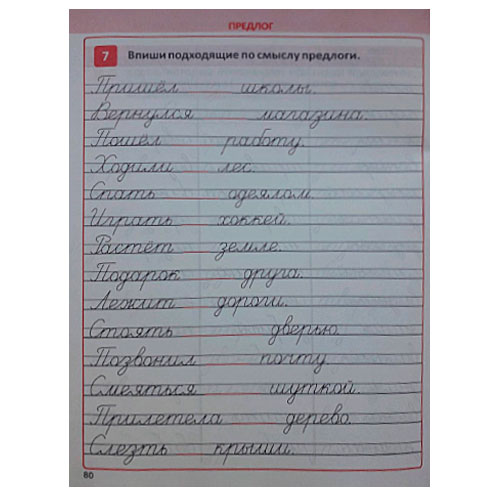 ПРЕДЛОГ
7 Впиши подходящие по смыслу предлоги.
Пришёл школы.
Вернулся магазина.
Пошёл работу.
Ходили лес.
Спать одеялом.
Играть хоккей.
Растёт земле.
Подарок друга.
Лежит дороги.
Стоять дверью.
Позвонил почту.
Смеяться шуткой.
Прилетела дерево.
Слезть крыши.
80